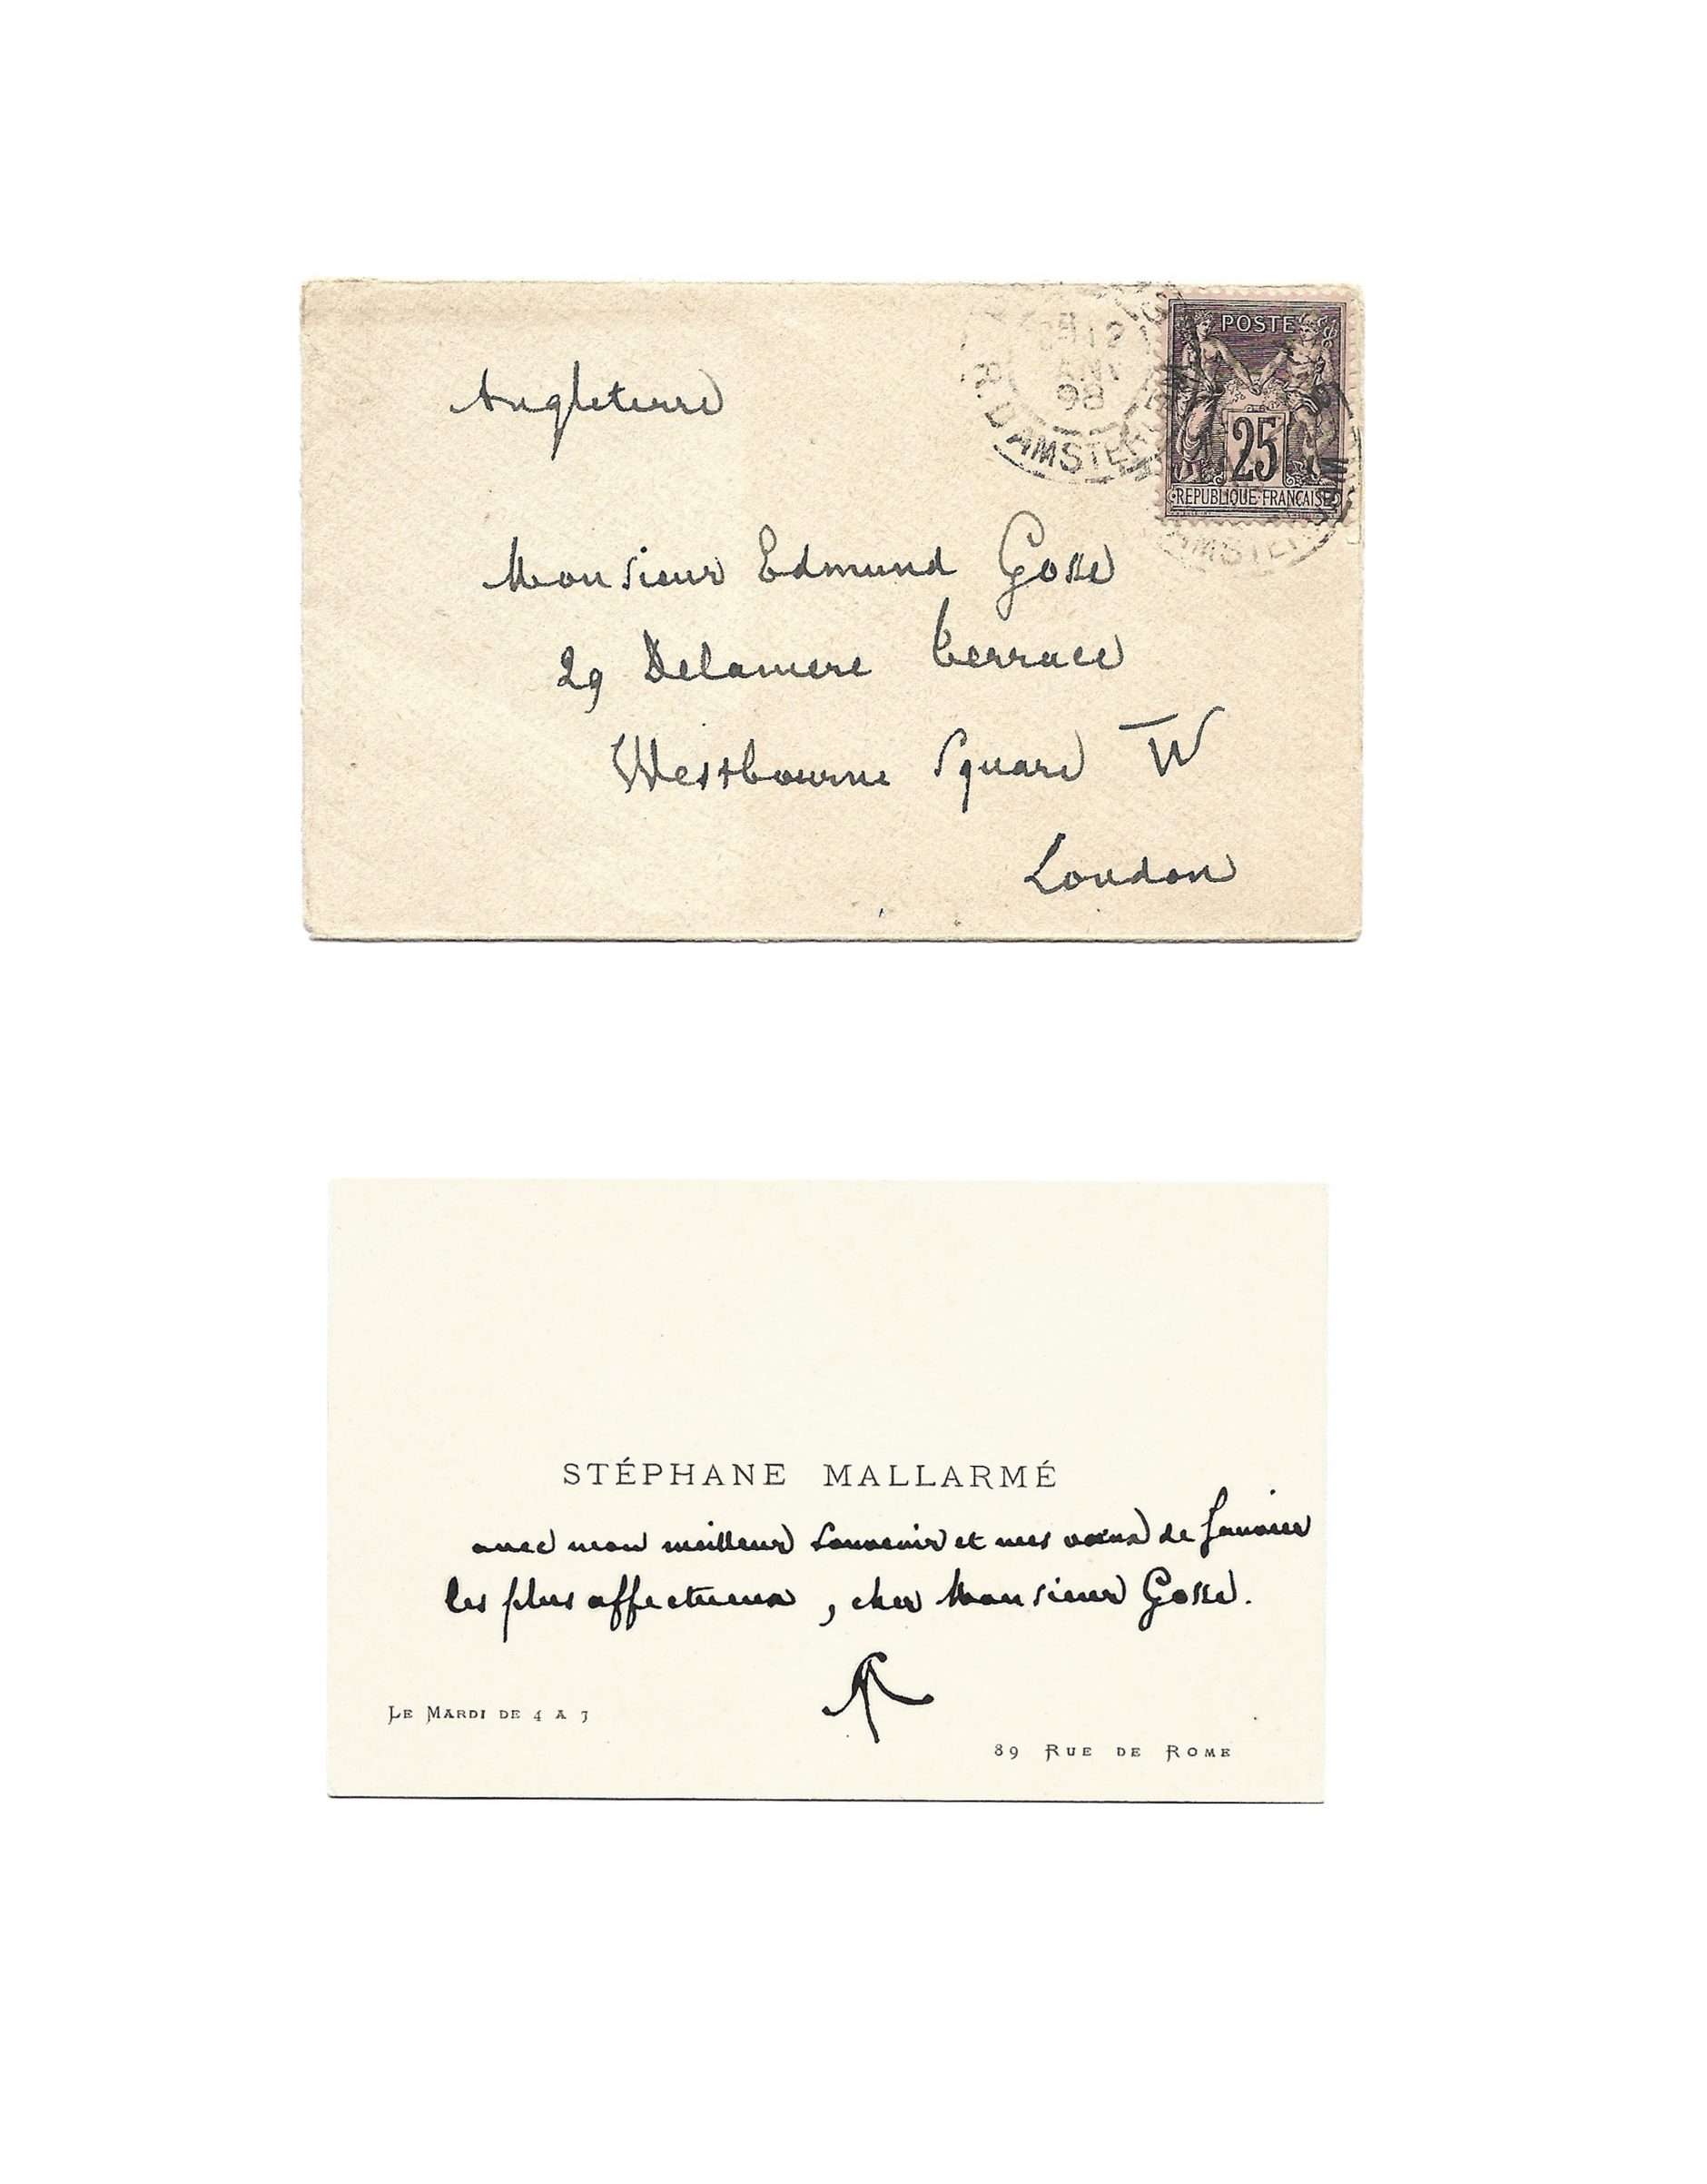 Angleterre
POSTE
25
REPUBLIQUE FRANÇAISE
98
R. D'AMSTERDAM
Monsieur Edmund Gosse
29 Delamere Terrace
Westbourne Square W
London
STÉPHANE MALLARMÉ
avec mon meilleur souvenir et mes vœux de Janvier
les plus affectueux, cher Monsieur Gosse.
LE MARDI DE 4 A 7
89 RUE DE ROME